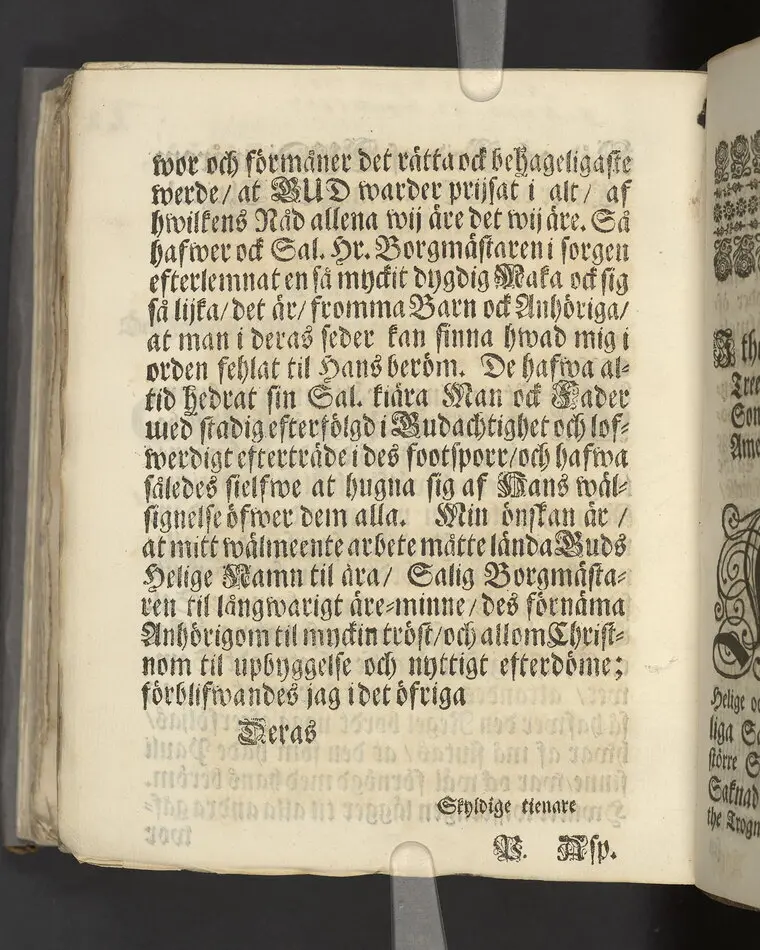 wor och förmåner det rätta ock behageligaste
werde/ at GUD warder prijsat i alt/ af
hwilkens Nåd allena wij äre det wij äre. Så
hafwer ock Sal. Hr. Borgmästaren i sorgen
efterlemnat en så myckit dygdig Maka ock sig
så lijka/ det är/ fromma Barn ock Anhöriga/
at man i deras seder kan finna hwad mig i
orden fehlat til Hans beröm. De hafwa al-
tid hedrat sin Sal. kiära Man ock Fader
med stadig efterfölgd i Gudachtighet och lof-
werdigt efterträde i des footsporr/och hafwa
således sielfwe at hugna sig af Hans wäl-
signelse öfwer dem alla. Min önskan är /
at mitt wälmeente arbete måtte lända Guds
Helige Namn til ära/ Salig Borgmästa-
ren til långwarigt äre-minne/ des förnäma
Anhörigom til myckin tröst/och allom Christ-
nom til upbyggelse och nyttigt efterdöme;
förblifwandes jag i det öfriga
Deras
Skyldige tienare
P. Asp.
I th
Tree
Son
Ame
Helige oc
liga S
större S
Saknad
the Trogn